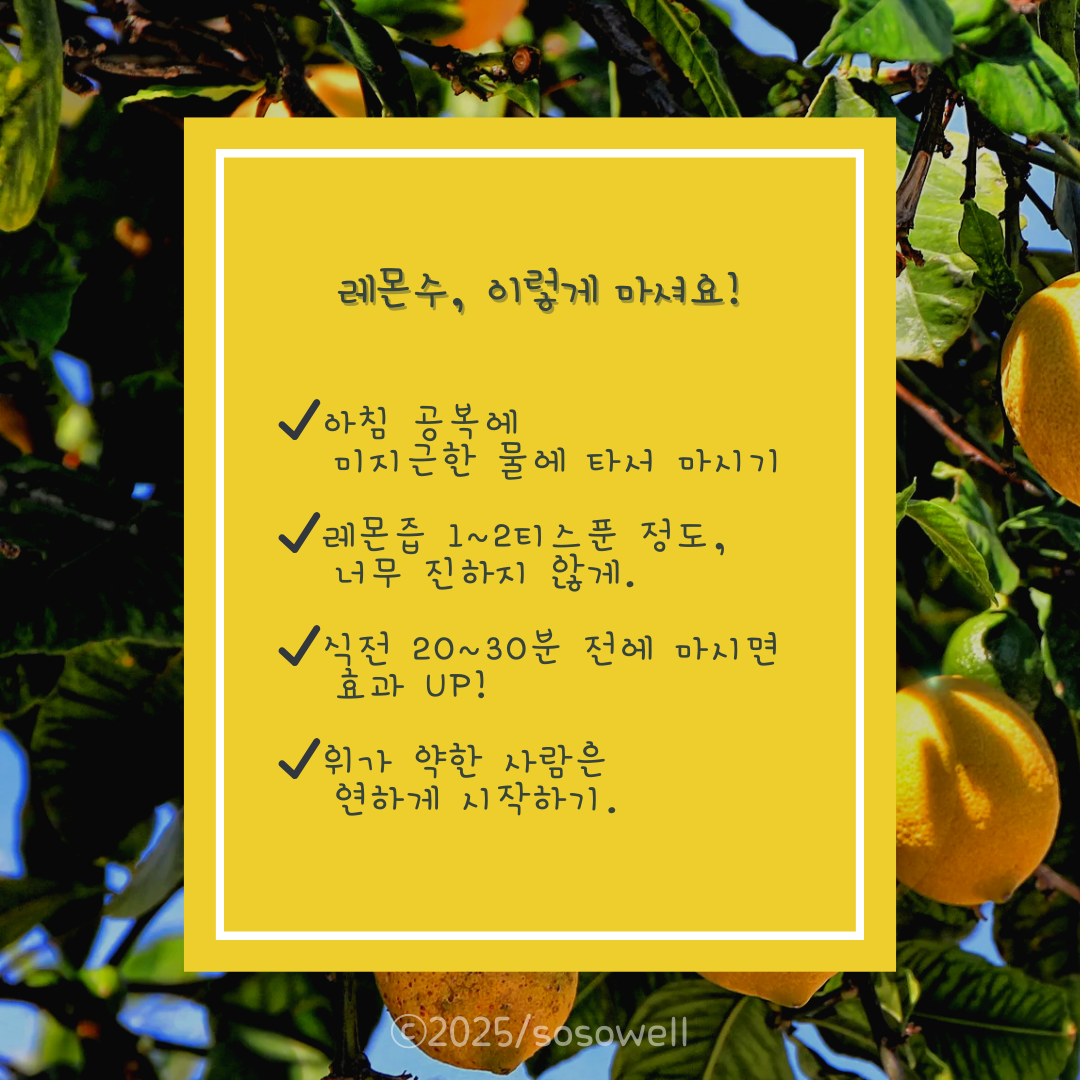 레몬수, 이렇게 마셔요!
✓아침 공복에
미지근한 물에 타서 마시기
✓레몬즙 1~2티스푼 정도,
너무 진하지 않게.
✓식전 20~30분 전에 마시면
효과 UP!
✓위가 약한 사람은
연하게 시작하기.
©2025/sosowell